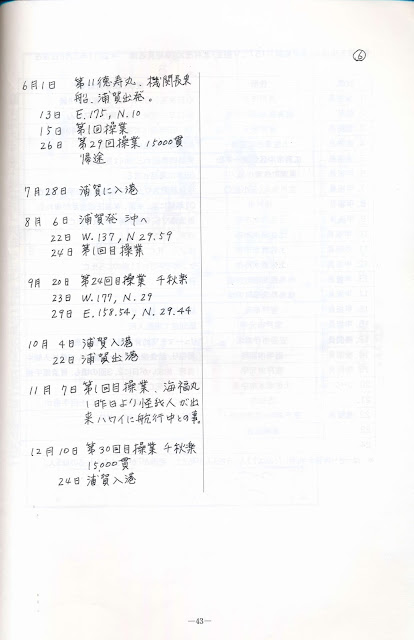 ⑥
6月1日 第11徳寿丸、機関長乗
船、浦賀出発。
13日 E.175, N.10
15日 第1回操業
26日 第29回操業 15000貫
帰途
7月28日 浦賀に入港
8月 6日 浦賀発 沖へ
22日 W.137, N 29.59
24日 第1回目操業
9月 20日 第24回目操業 千秋楽
23日 W.177, N.29
29日 E.158.54, N.29.44
10月 4日 浦賀入港
22日 浦賀出港
11月 7日 第1回目操業、海福丸
1昨日より怪我人が出
来ハワイに航行中との事。
12月10日 第30回目操業 千秋楽
15,000貫
24日 浦賀入港
—43—